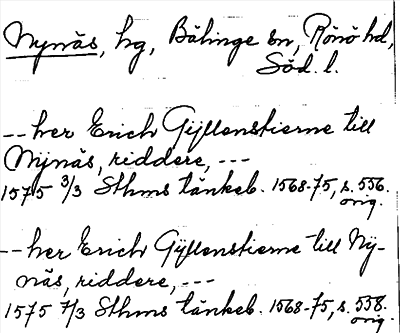 Nynäs, hg, Bälinge sn, Rönö hd,
Söd. l.
-- her Erich Gyllenstierne till
Nynäs, riddere, ---
1575 3/3 Sthms tänkeb. 1568-75, s. 556.
orig.
-- her Erich Gyllenstierne till Ny-
näs, riddere, ---
1575 7/3 Sthms tänkeb. 1568-75, s. 558.
orig.